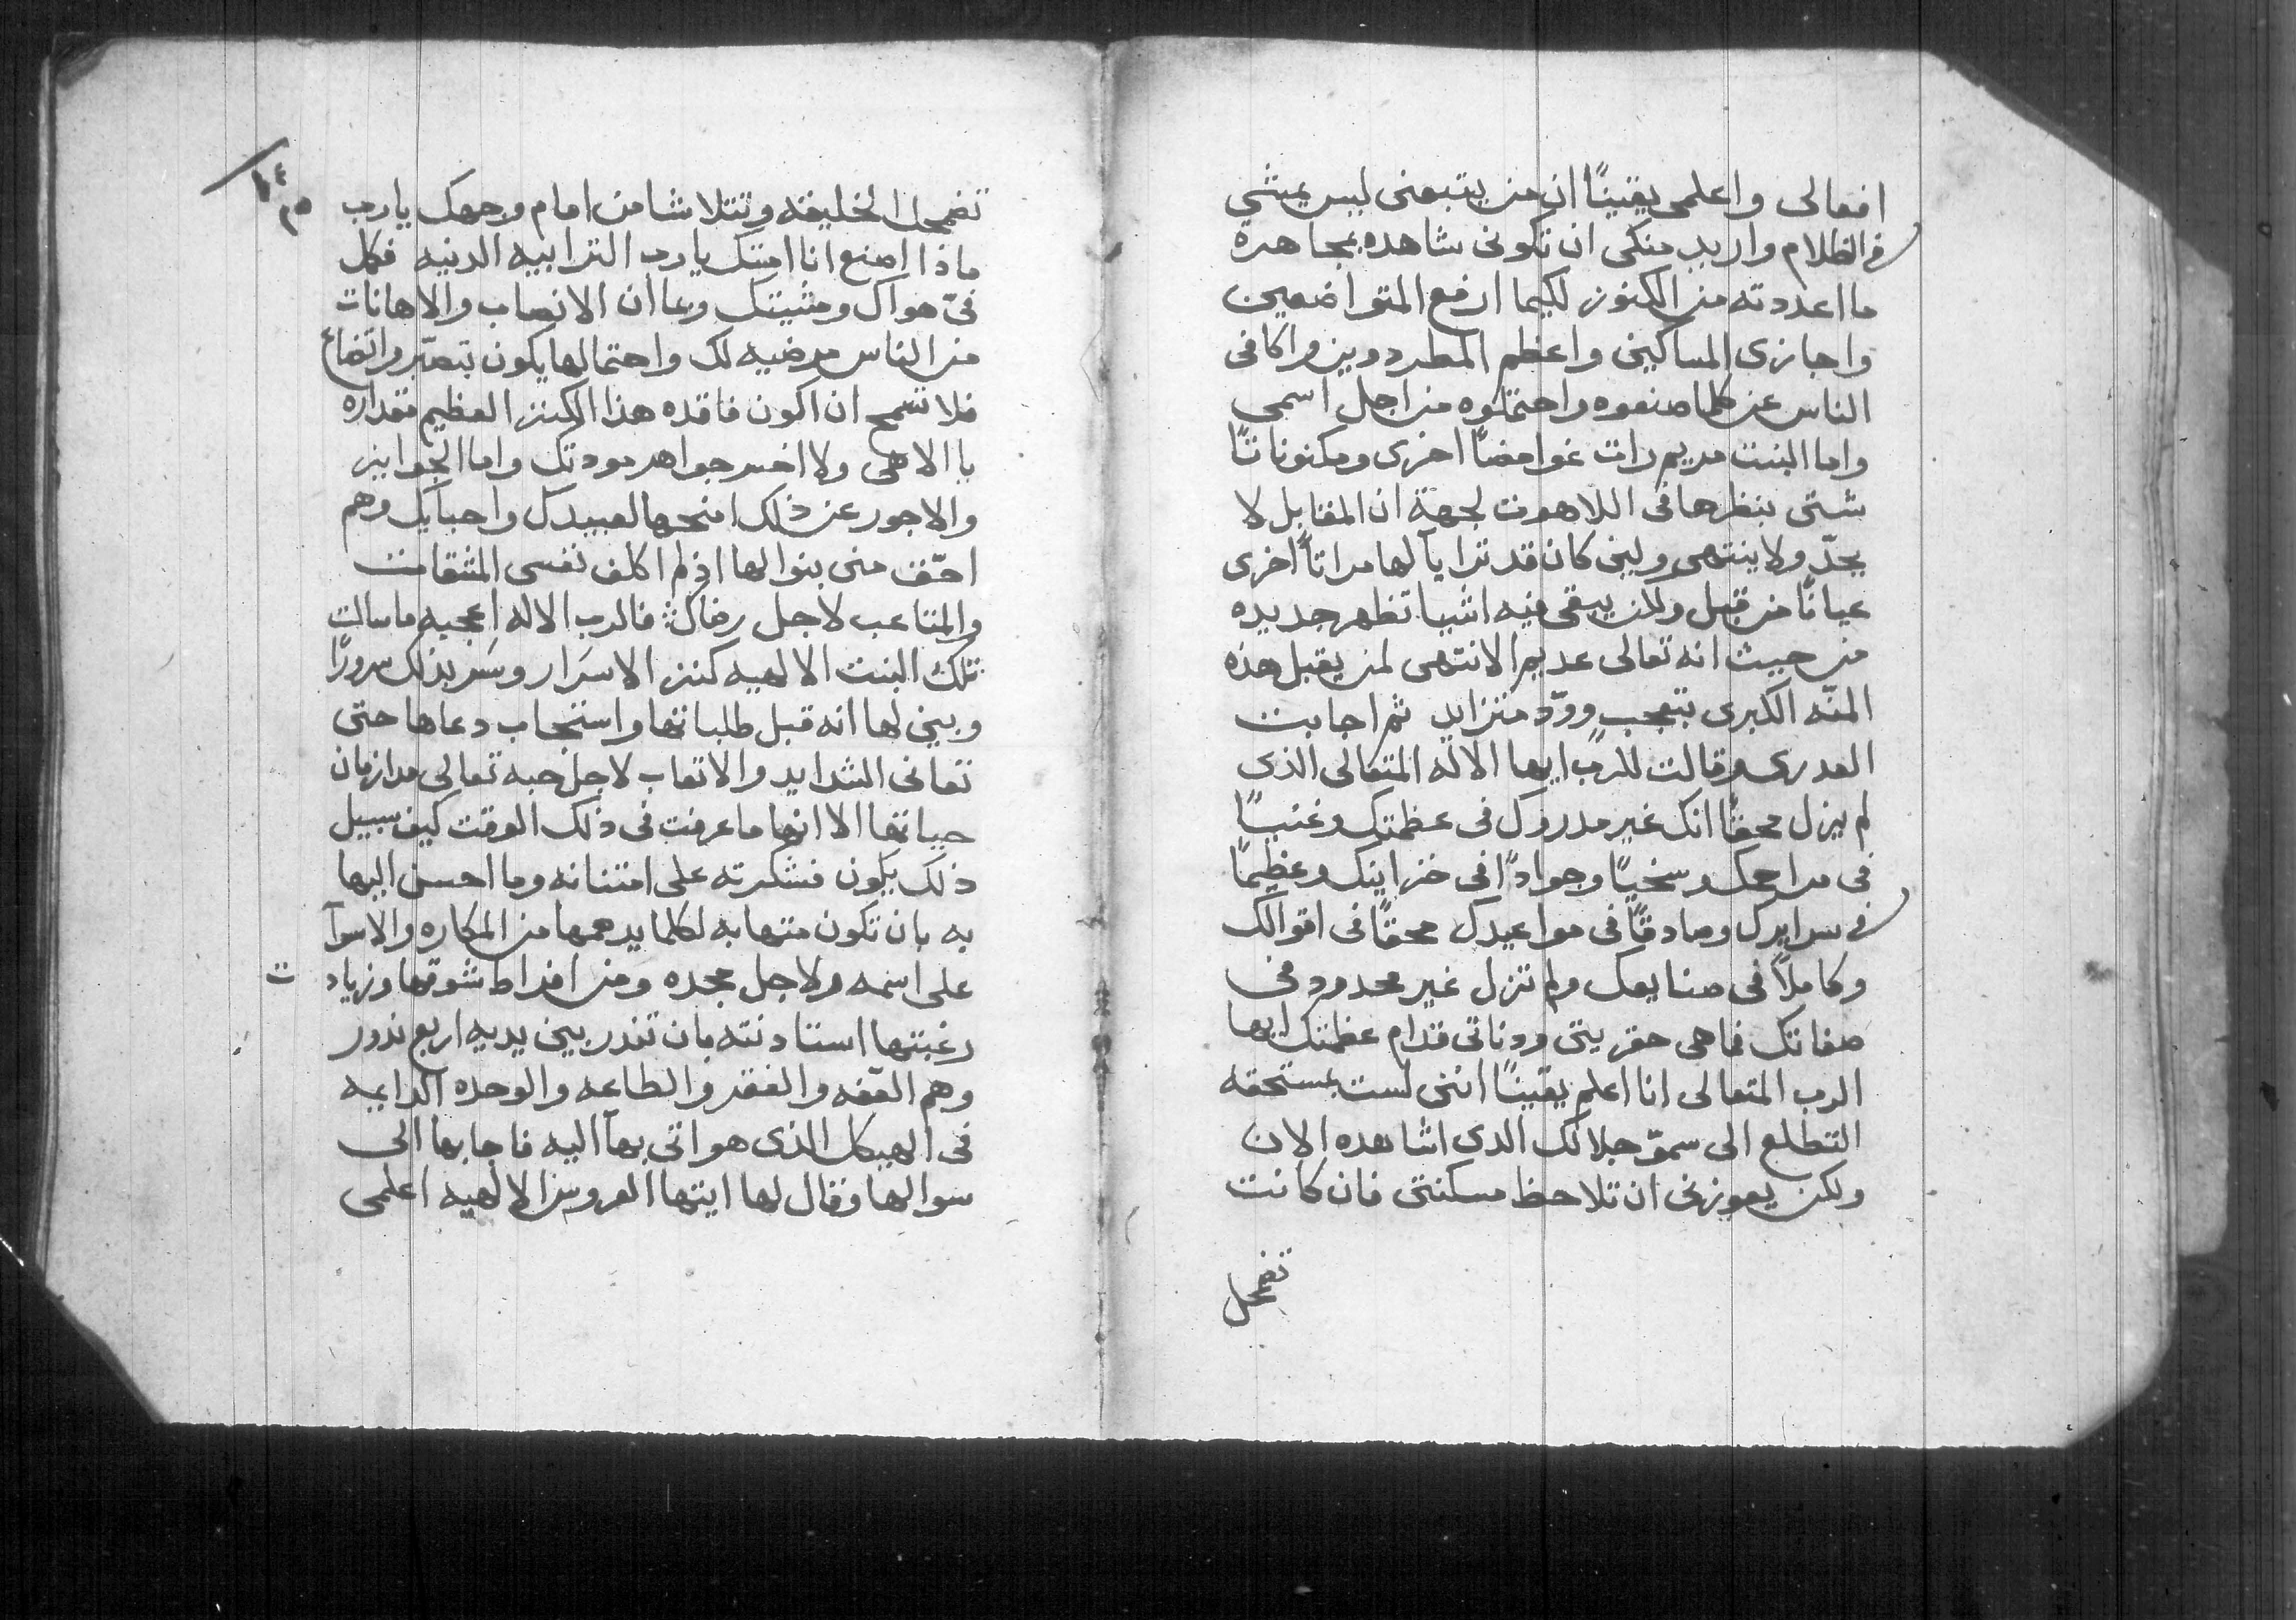 افعالى واعلمى يقينًا ان من يتبعنى ليس يمشي
فى الظلام واريد منكى ان تكونى شاهده بمجاهرة
ما اعددته من الكنوز لكيما ارفع المتواضعين
واجازى المساكين واعظم المطرودين واكافى
الناس عن كلما صنعوه واحتملوه من اجل اسمى
واما البنت مريم رات غوامضًا اخرى ومكنوناتًا
شتى بنظرها فى اللاهوت لجهة ان المقابل لا
يحدّ ولا ينتهى ولين كان قد ترايا لها مراتًا اخرى
عيانًا من قبل ولكن يبقى فيه اشيا تظهر جديده
من حيث انه تعالى عديم الانتهى لمن يقبل هذه
المنّه الكبرى بتعجبٍ وودّ متزايد ثم اجابت
العدرى وقالت للرب ايها الاله المتعالى الذى
لم يزل محقًا انك غير مدروك فى عظمتك وغنيًا
فى مراحمك وسخيًا وجوادًا فى خزاينك وعظيمًا
فى سرايرك وصادقًا فى مواعيدك محقًا فى اقوالك
وكاملًا فى صنايعك ولم تزل غير محدود فى
صفاتك فما هى حقريتى ودناتى قدام عظمتك ايها
الرب المتعالى انا اعلم يقينًا اننى لست بمستحقه
التطلع الى سموّ جلالك الدى اشاهده الان
ولكن يعوزنى ان تلاحظ مسكنتى فان كانت
تضمحل
١٤٥
تضمحل الخليقه وتتلاشا من امام وجهك يارب
ماذا اصنع انا امتك يا رب الترابيه الدنيه فكل
فىّ هواك ومشيتك وعا ان الاتعاب والاهانات
من الناس مرضيه لك واحتمالها يكون بتصبّر واتضاع
فلا تسمح ان اكون فاقده هذا الكنز العظيم مقداره
يا الاهى ولا اخسر جواهر مودتك واما الجوايز
والاجور عن ذلك امنحها لعبيدك واحبايك وهم
احقّ منى بنوالها اذ لم اكلف نفسى المشقات
والمتاعب لاجل رضاك فالرب الاله اعجبه ما سالت
تلك البنت الالهيه كنز الاسرار وسَر بذلك سرورًا
وبين لها انه قبل طلباتها واستجاب دعاها حتى
تعانى الشدايد والاتعاب لاجل حبه تعالى مدا زمان
حياتها الا انها ما عرفت فى ذلك الوقت كيف سبيل
ذلك يكون فشكرته على امتنانه وما احسن اليها
به بان تكون متهابه لكلما يدهمها من المكاره والاسوآ
على اسمه ولاجل مجده ومن افراط شوقها وزيادت
رغبتها استادنته بان تندر بين يديه اربع ندور
وهم العفّه والفقر والطاعه والوحده الدايمه
فى الهيكل الذى هو اتى بها اليه فاجابها الى
سوالها وقال لها ايتها العروس الالهيه اعلمى